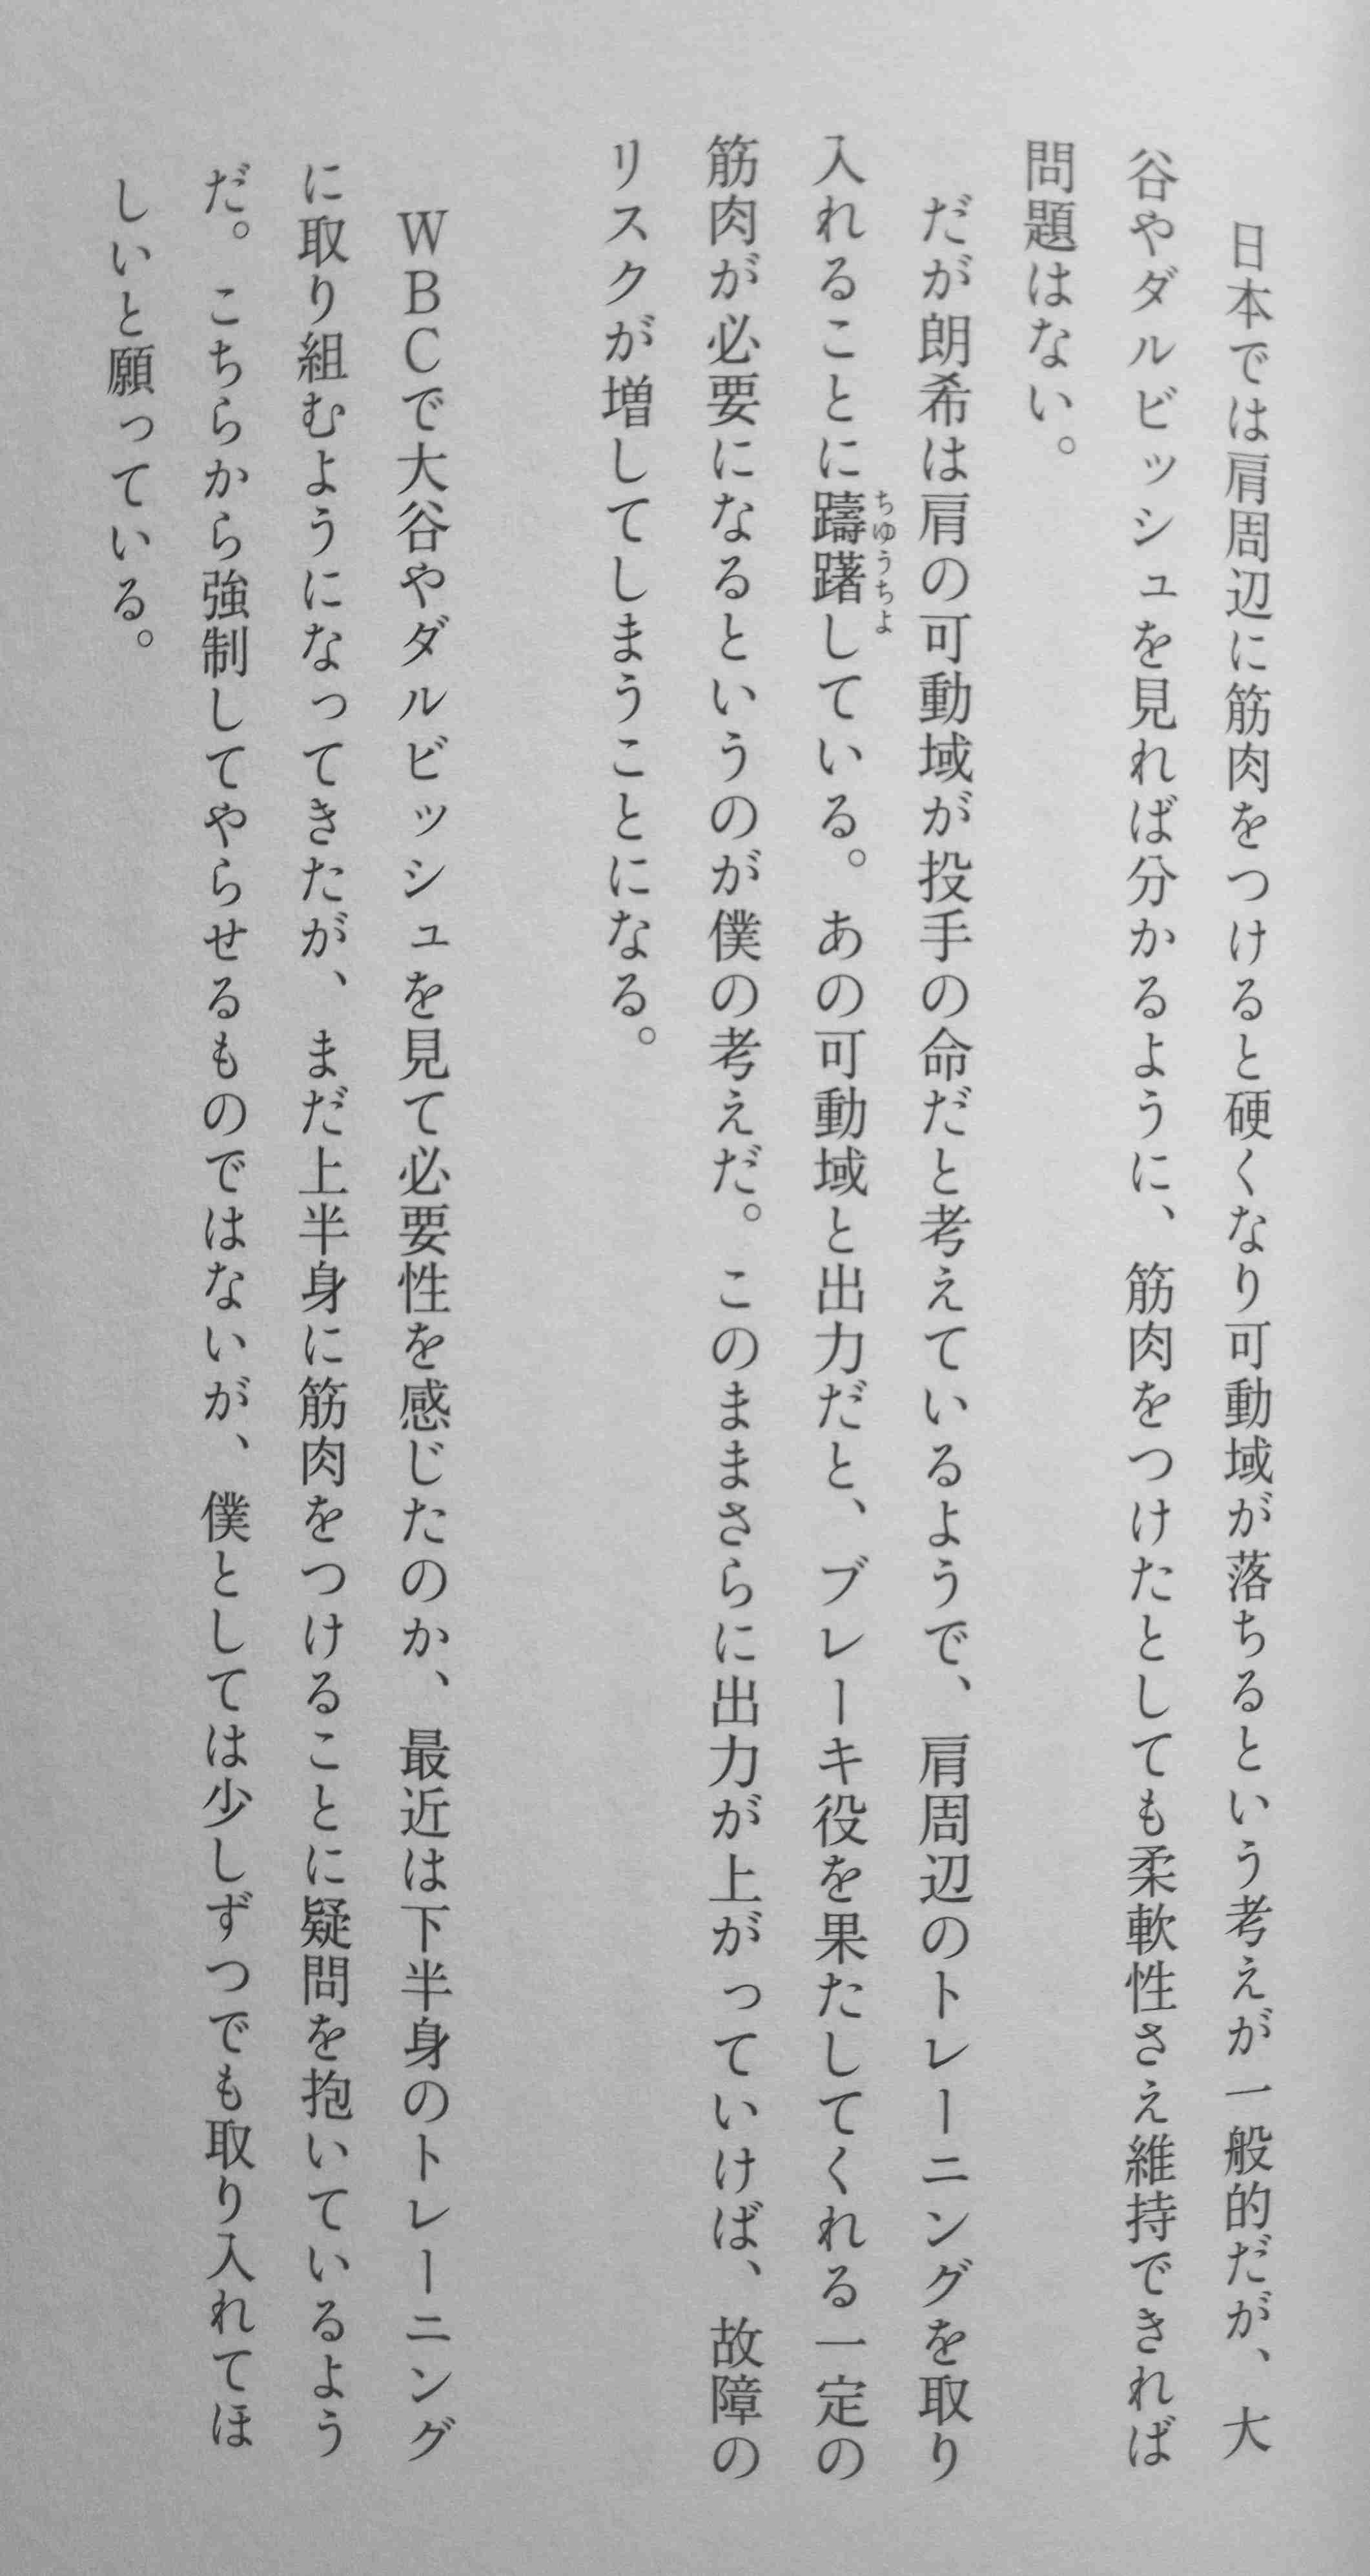 日本では肩周辺に筋肉をつけると硬くなり可動域が落ちるという考えが一般的だが、大
谷やダルビッシュを見れば分かるように、筋肉をつけたとしても柔軟性さえ維持できれば
問題はない。
だが朗希は肩の可動域が投手の命だと考えているようで、肩周辺のトレーニングを取り
入れることに躊躇している。あの可動域と出力だと、ブレーキ役を果たしてくれる一定の
ちゆうちよ
筋肉が必要になるというのが僕の考えだ。このままさらに出力が上がっていけば、故障の
リスクが増してしまうことになる。
WBCで大谷やダルビッシュを見て必要性を感じたのか、最近は下半身のトレーニング
に取り組むようになってきたが、まだ上半身に筋肉をつけることに疑問を抱いているよう
だ。こちらから強制してやらせるものではないが、僕としては少しずつでも取り入れてほ
しいと願っている。